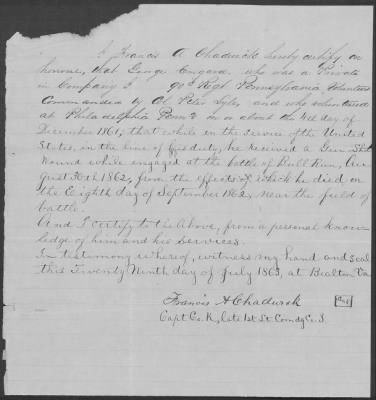 I Francis A Chadwick hereby certify on
honour, that George Engard, who was a Private
in Company I 90th Regt Pennsylvania Volunteers
Commanded by Col Peter Lyle, and who volunteered
at Philadelphia Penn'a on or about the day of
December 1861; that while in the service of the United
States, in the line of his duty, he received a Gun Shot
Wound while engaged at the battle of Bull Run, Au-
gust 30th 1862, from the effects of which he died on
the Eighth day of September 1862, near the field of
battle.
And I certify to the above, from a personal know-
ledge of him and his services.
In testimony whereof, witness my hand and seal
this Twenty Ninth day of July 1863, at Bealton Va
Francis A Chadwick
Capt Co. K, late 1st Lt Comdg Co. I.